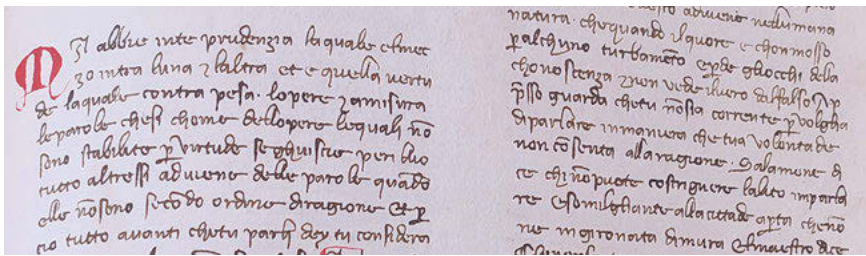 Mai abbie inte prudenzia laquale elmec
zo intra luna ⁊ laltra et e quella vertu
de laquale contra pesa · lopere ⁊ amisura
leparole chesi chome dellopere lequali nō
sono stabilite p̲ virtude seghuiscie periblio
tutto altressi adviene delle parole quādo
elle nōsono secōdo ordine diragione Et p̲
cio tutto avanti chetu parli dey tu considera
adviene nellumana
natura · chequando il quore e chonmosso
p̲alchuno turbamēto ep̲de gliocchi della
chonoscenza ⁊ non vede ilvero dalfalso
p̲sso guarda chetu nōsia corrente p̲ volglia
diparlare inmaniera che tua volonta de
non cōsenta allaragione · Salamone di
ce chi nōpuote costringuere lalito imparla
re esomilgliante alla cittade ap̲ta chenō
ne intorniata dimura Elmaestro dice